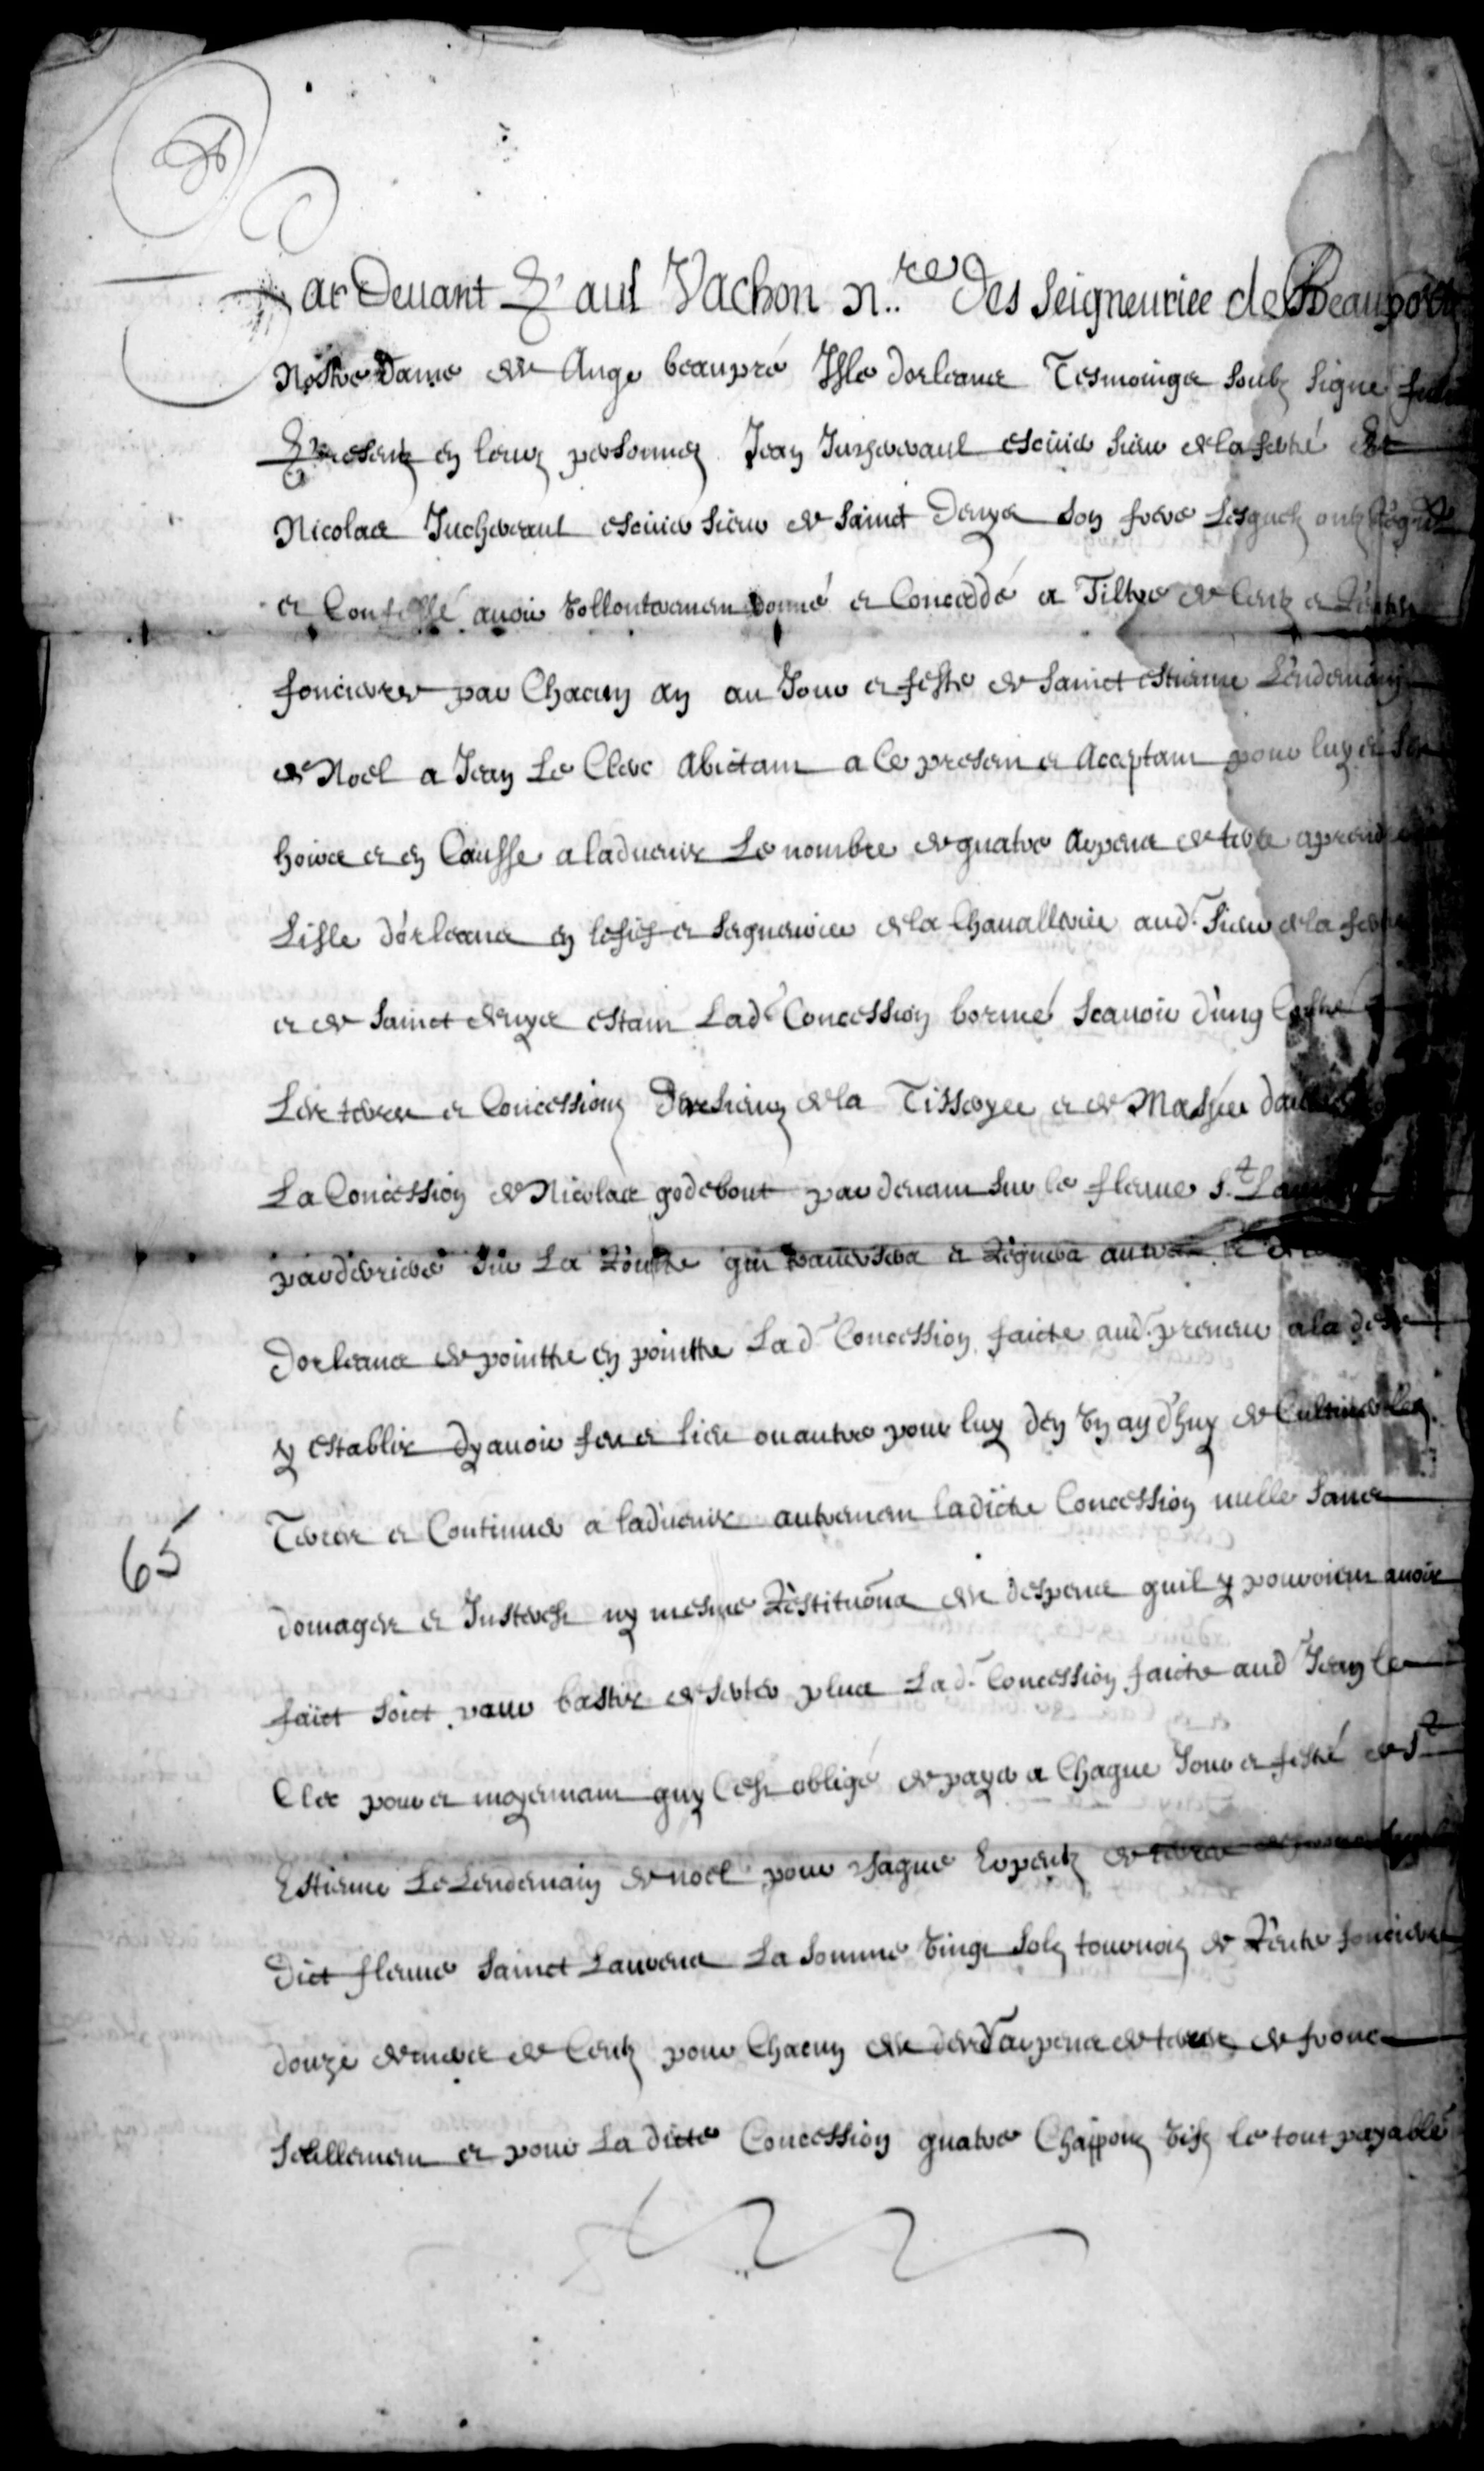 Par Devant Paul Vachon n.re des Seigneuries de Beauport
Nostre Dame des Ange beaupré Isle dorleans Tesmoings soubz signe fure
Presentz en leurs personnes Jean Juchereaul escuier sieur de la ferté Et
Nicolas Juchereaul escuier sieur de Sainct Denys son frere Lesquelz ont
et Confessé avoir vollontairement donné et Conceddé a Tiltre de Centz et Rentes
foncieres par Chacun an au Jour et feste de Sainct estienne Lendemain
de Noel a Jean Le Clerc abictant a Ce present et Aceptant pour luy et ses
hoirs et en Causse a ladvenir Le nombre de quatre arpens de terre aprendre
Lisle dorleans en lefief et seigneuries de la Chavallerie aud. Sieur de la ferté
et de Sainct denys estant Lad. Concession borné Scavoir dung Costé
Les terres et Concessions des sieurs de la Tissoyes et de Masfée dau
La Concession de Nicolas godebout par devant sur le fleuve S.t Lau
par deriere sur La Routte qui traversera et Regnera
Dorleans de pointte en pointte Lad. Concession faicte aud. preneur a la
y establir dy avoir feu et lieu ou autre pour luy den un an dhuy de Cultiver les
Terres et Continuer a ladvenir autrement ladicte Concession nulle sans
domages et Interestz ny mesme Restitution des despens quil y pouroient avoir
faict soict pour bastir deserter plus Lad. Concession faicte aud Jean le
Clec pour et moyennant quy Cest obligé de payer a Chaque Jour et festé de S.t
Estienne Le Lendemain de noel pour chaque Erpentz de terre
Dict fleuve Sainct Laurens La Somme vingt Solz tournois de Rente fonciere
douze deniers de Centz pour Chacun desd. arpens de terres de fronc
Seullement et pour La dicte Concession quatre Chappons vifz le tout payable
65